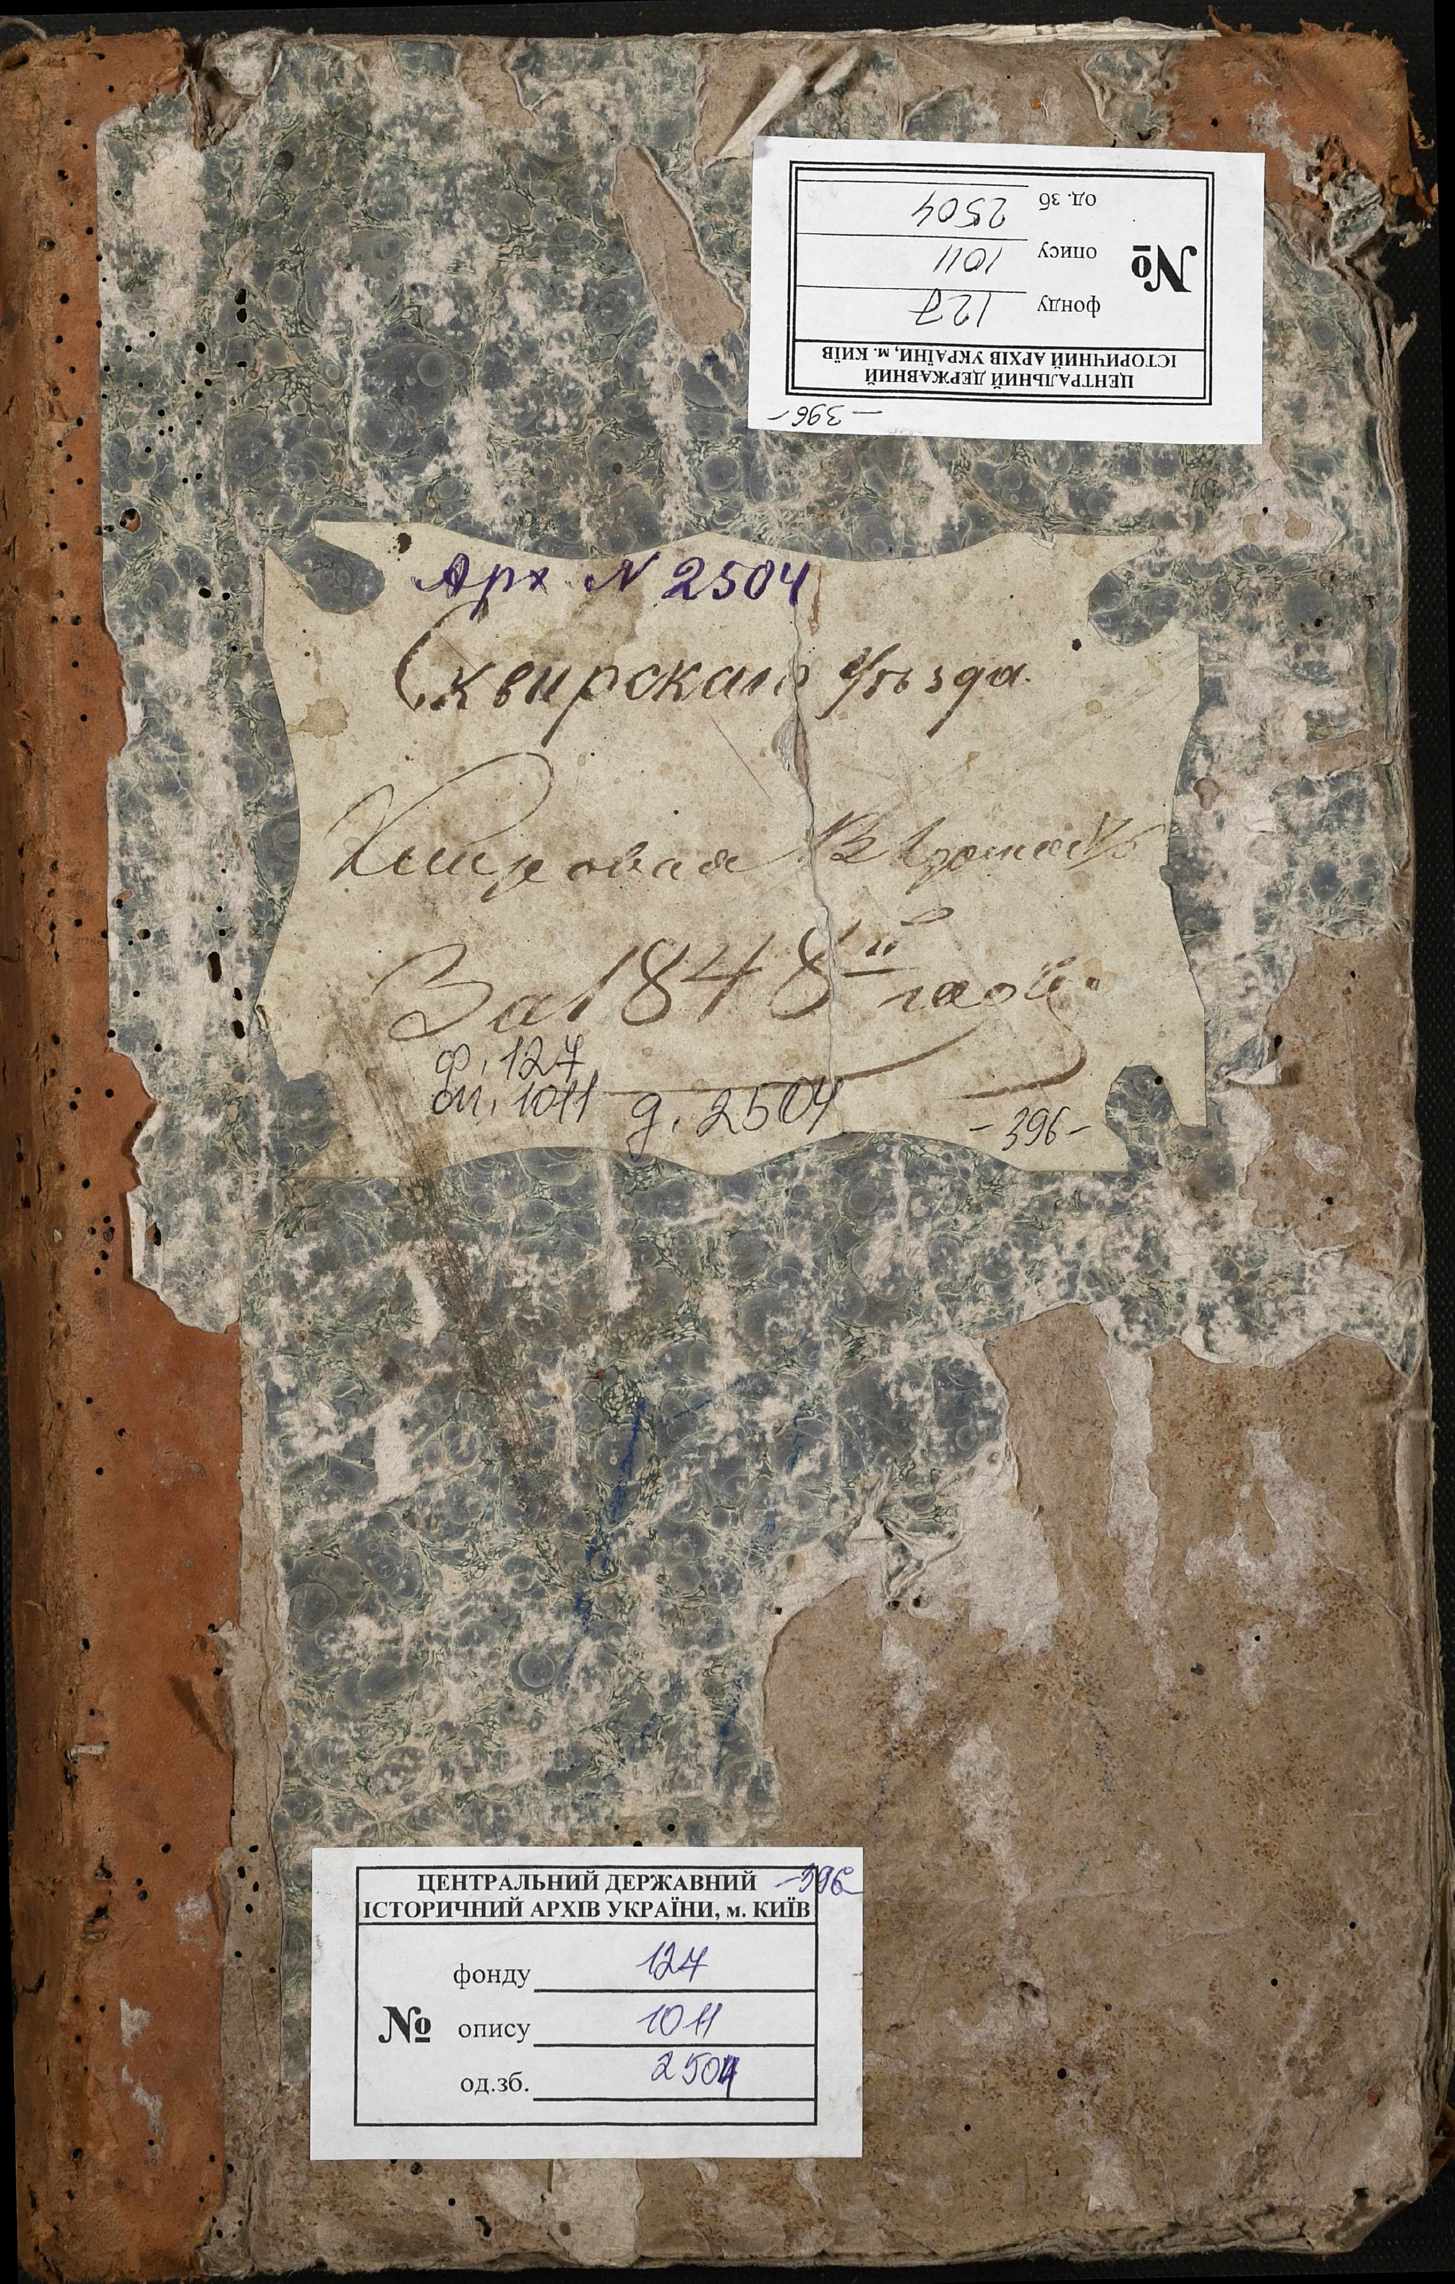 од. зб 2504
опису 1011
фонду 127
№
ЦЕНТРАЛЬНИЙ ДЕРЖАВНИЙ
ІСТОРИЧНИЙ АРХІВ УКРАЇНИ, м. КИЇВ
-396-
Арх N 2504
Сквирскаго Уѣзда.
За 1848й годъ.
ф. 127
оп. 1011 д. 2504
-396-
ЦЕНТРАЛЬНИЙ ДЕРЖАВНИЙ -396-
ІСТОРИЧНИЙ АРХІВ УКРАЇНИ, м. КИЇВ
фонду 127
№ опису 1011
од.зб. 2504